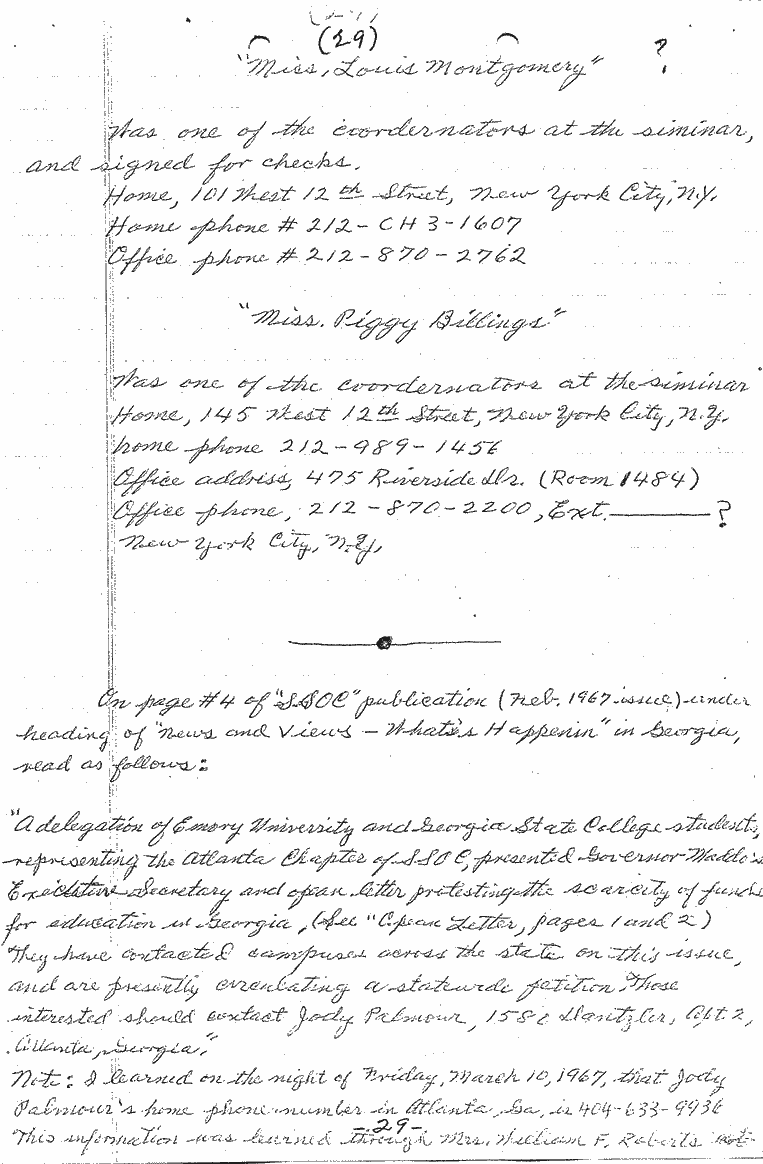 (29)
(29)
"Miss, Louis Montgomery" ?
Was one of the coordernators at the siminar,
and signed for checks.
Home, 101 West 12th Street, New York City, N.Y.
Home phone # 212-CH 3-1607
Office phone # 212-870-2762
"Miss. Piggy Billings"
Was one of the coordernators at the siminar
Home, 145 West 12th Street, New York City, N.Y.
home phone 212-989-1456
Office address, 475 Riverside Dr. (Room 1484)
Office phone, 212-870-2200, Ext. ———?
New York City, N.Y,
On page #4 of "SSOC" publication (Feb. 1967 issue) under
heading of "News and Views - What's Happenin" in Georgia,
read as follows:
"A delegation of Emory University and Georgia State College students,
representing the Atlanta Chapter of SSOC, presented Governor Maddox's
Executive Secretary and opean letter protesting the scarcity of funds
for education in Georgia, (See "Opean Letter, pages 1 and 2)
They have contacted campuses across the state on this issue,
and are presently circulating a statewide petition. Those
interested should contact Jody Palmour, Apt. 2,
Atlanta, Georgia."
Note: I learned on the night of Friday, March 10, 1967, that Jody
Palmour's home phone number in Atlanta, Ga, is 404-633-9936
This information was learned through Mrs. William F. Roberts not
-29-